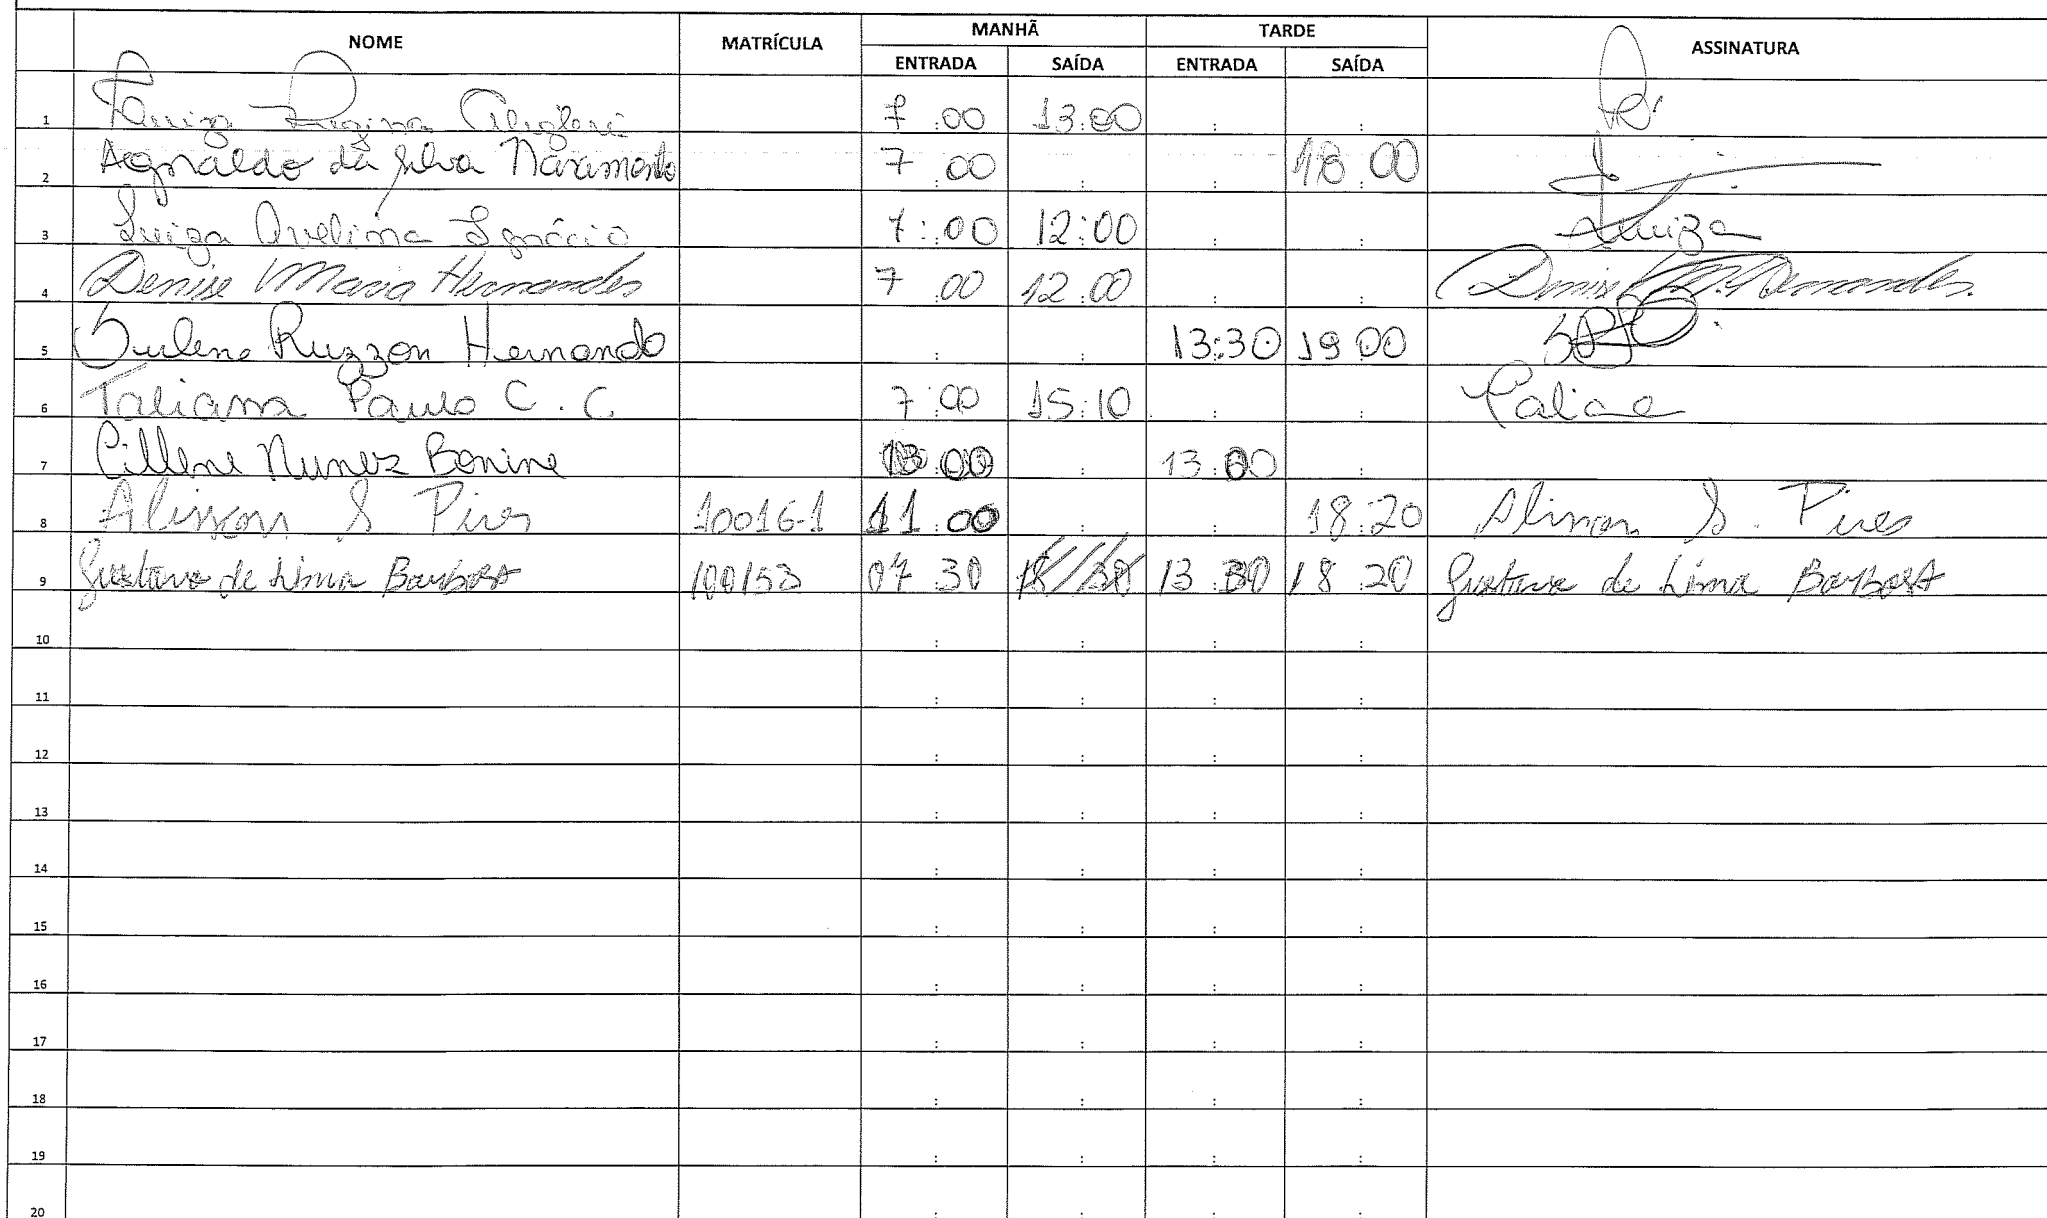 NOME MATRÍCULA MANHÃ TARDE ASSINATURA
ENTRADA SAÍDA ENTRADA SAÍDA
1 Luiza Regina 7:00 13:00
2 Agnaldo da Silva Nascimento 7:00 18:00
3 Luiza Avelina Ignácio 7:00 12:00 Luiza
4 Denise Maria Hernandes 7:00 12:00 Denise M. Hernandes.
5 Sulene Ruzzon Hernando 13:30 19:00
6 Taliana Paulo C. C. 7:00 15:10
7 Cillene Nunez Bonine 13:00
8 Alisson S Pires 10016-1 11:00 18:20 Alisson S. Pires
9 Gustavo de Lima Barbosa 100153 07:30 13:30 18:20 Gustavo de Lima Barbosa
10 : : : :
11 : : : :
12 : : : :
13 : : : :
14 : : : :
15 : : : :
16 : : : :
17 : : : :
18 : : : :
19 : : : :
20 : : : :